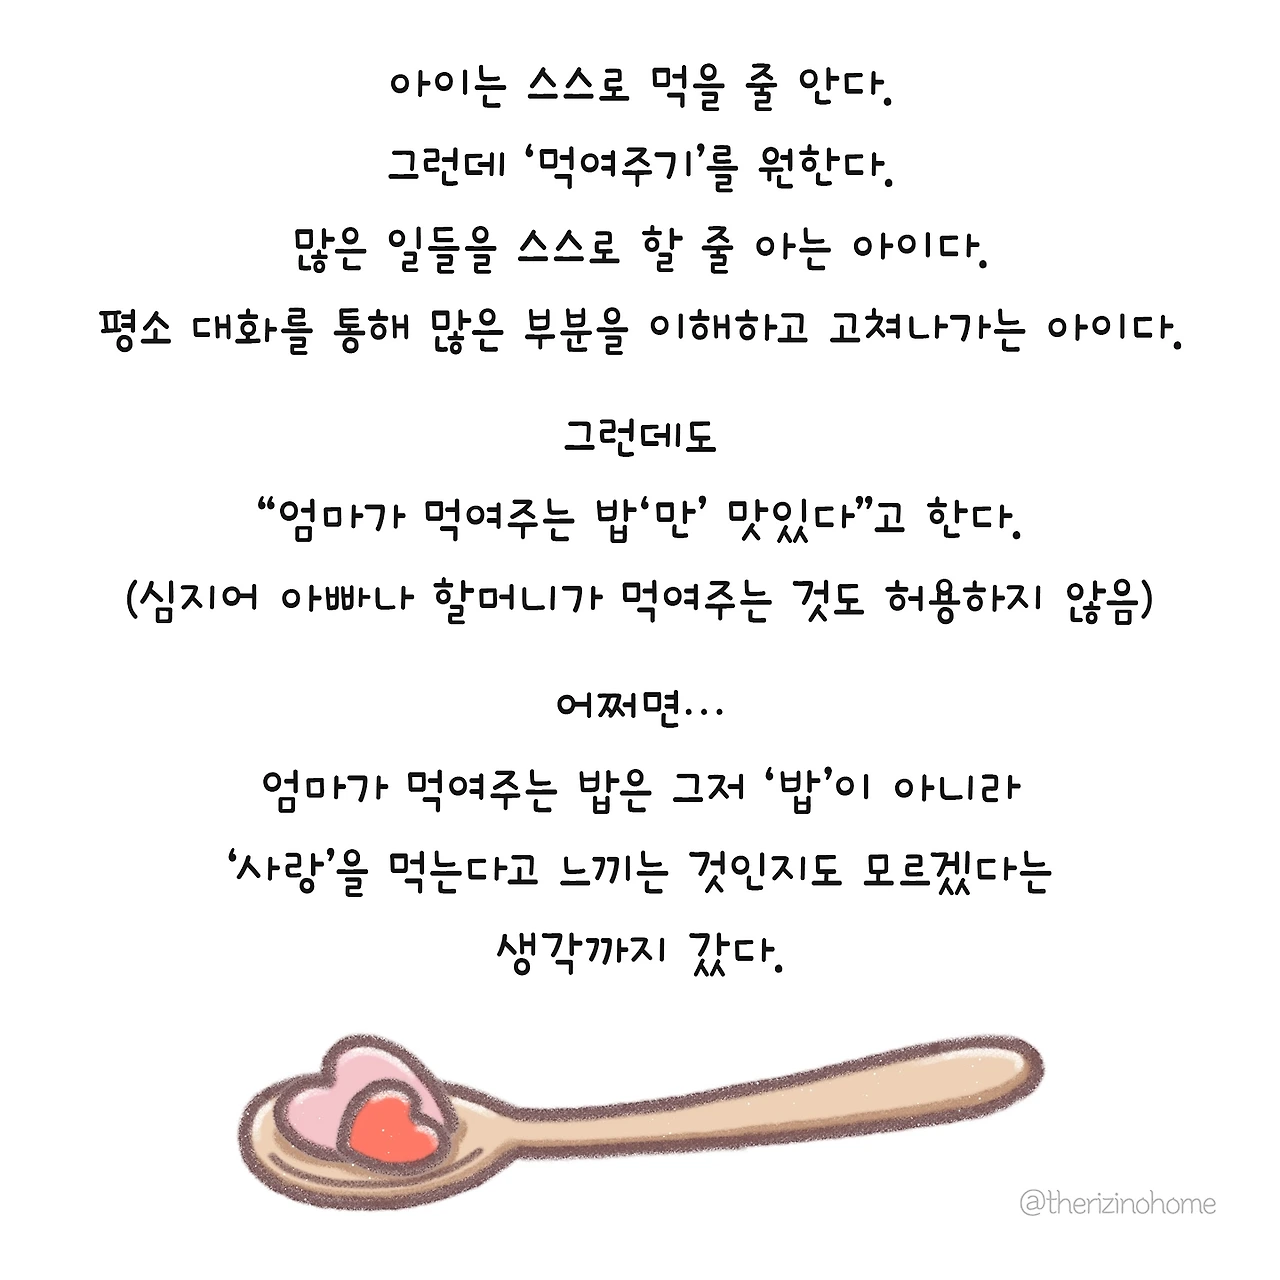 아이는 스스로 먹을 줄 안다.
그런데 ‘먹여주기’를 원한다.
많은 일들을 스스로 할 줄 아는 아이다.
평소 대화를 통해 많은 부분을 이해하고 고쳐나가는 아이다.
그런데도
“엄마가 먹여주는 밥‘만’ 맛있다”고 한다.
(심지어 아빠나 할머니가 먹여주는 것도 허용하지 않음)
어쩌면...
엄마가 먹여주는 밥은 그저 ‘밥’이 아니라
‘사랑’을 먹는다고 느끼는 것인지도 모르겠다는
생각까지 갔다.
@therizinohome